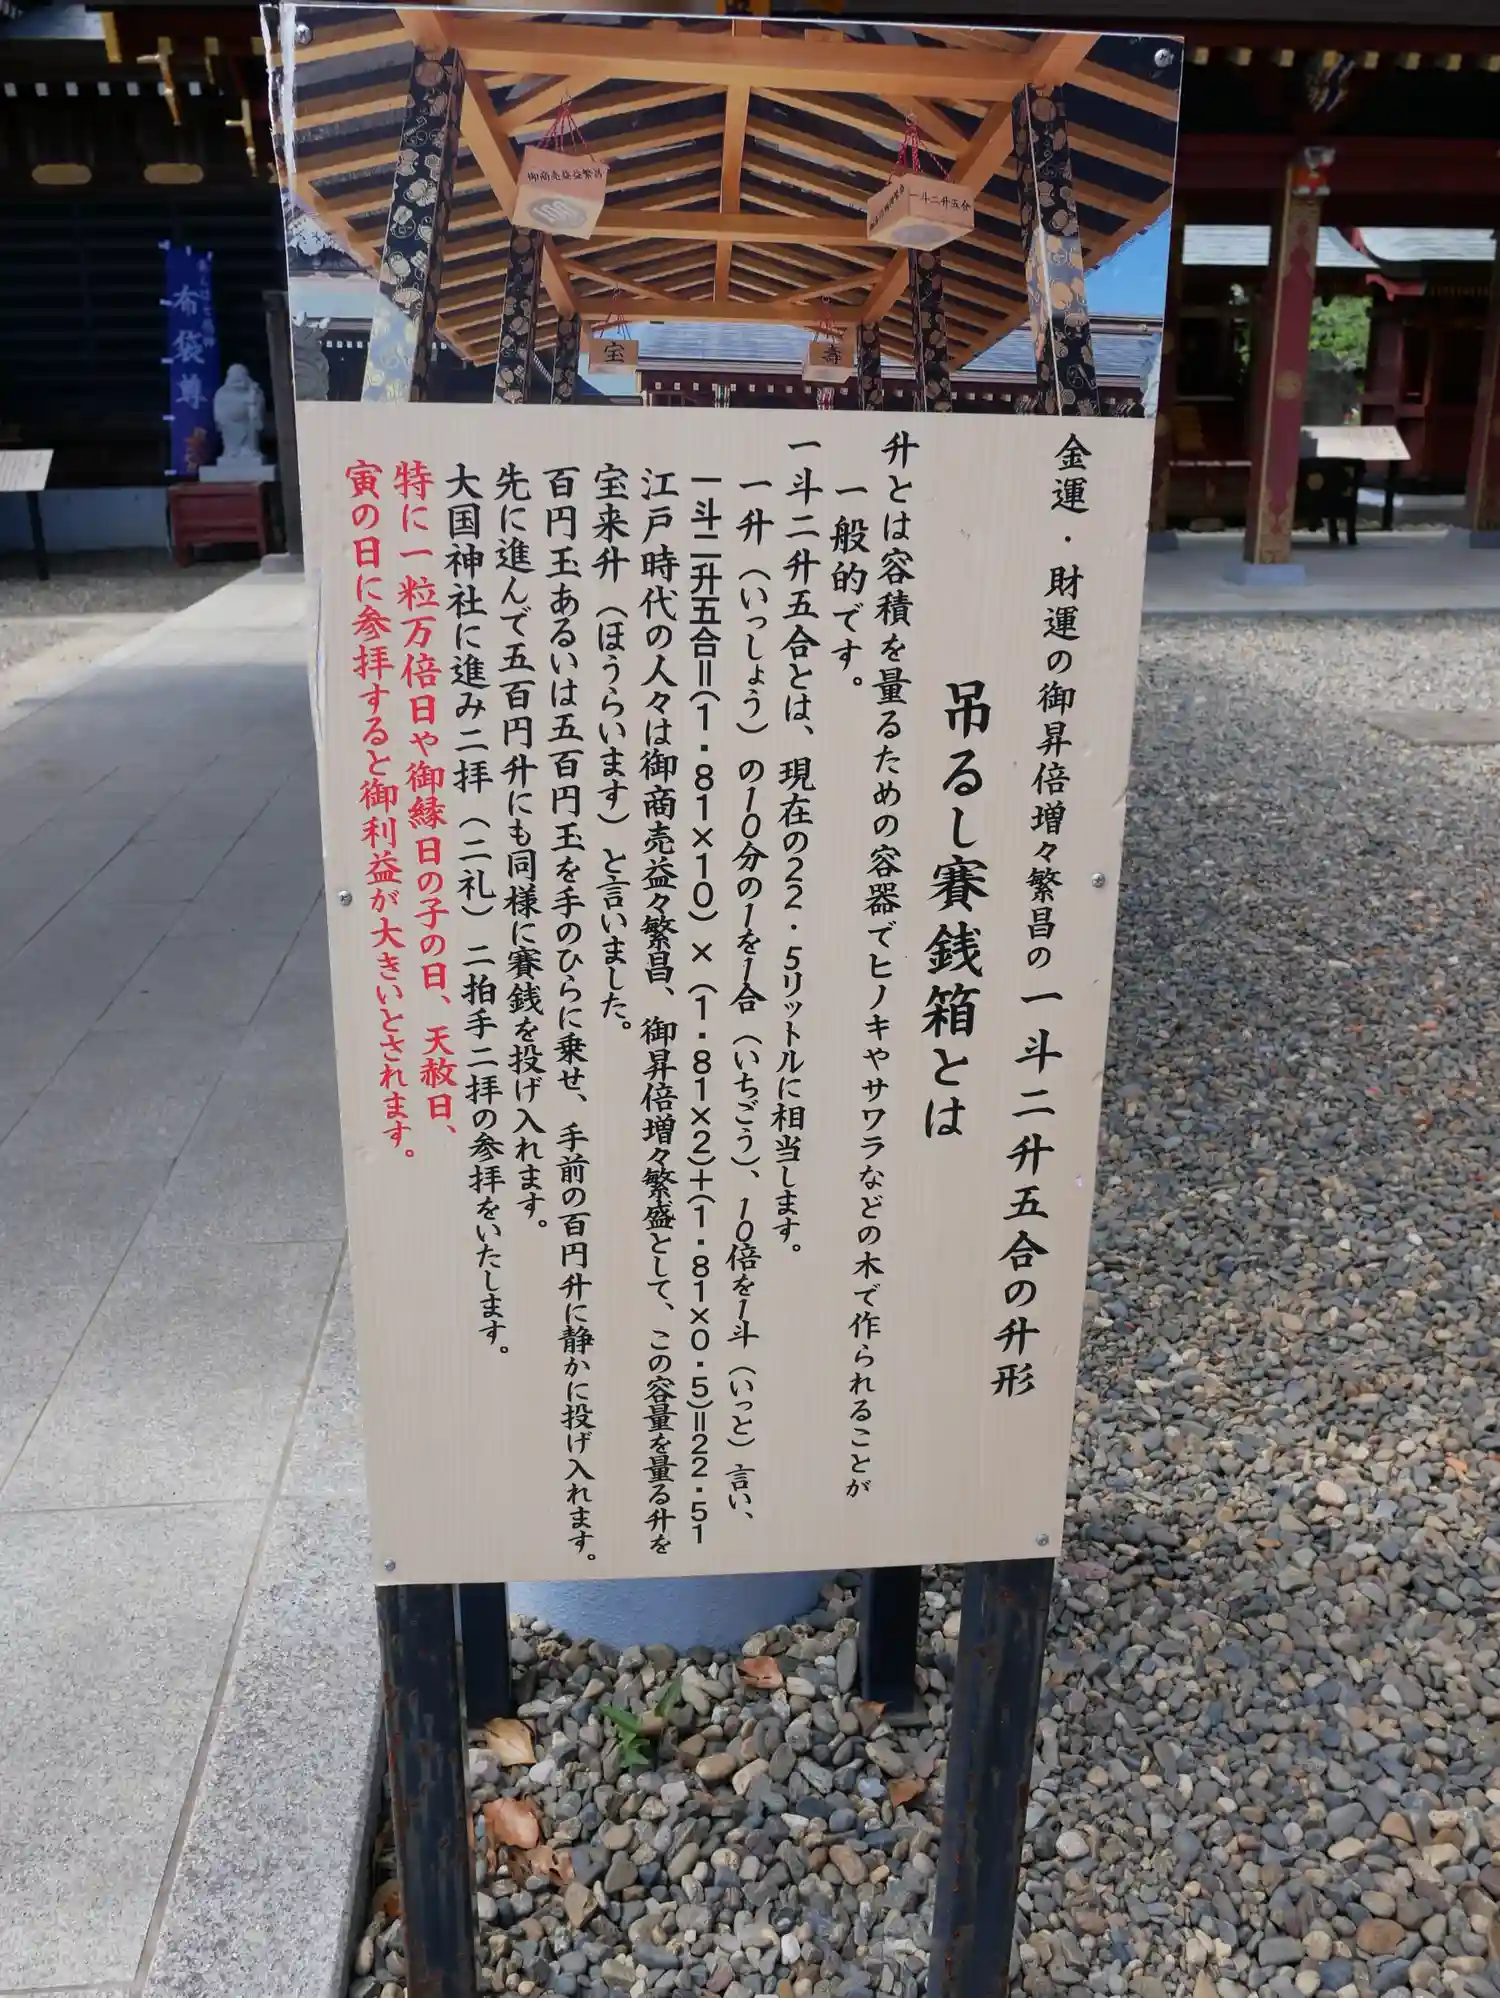 金運・財運の御昇倍増々繁昌の一斗二升五合の升形
吊るし賽銭箱とは
升とは容積を量るための容器でヒノキやサワラなどの木で作られることが
一般的です。
一斗二升五合とは、現在の22.5リットルに相当します。
一升（いっしょう）の10分の1を1合（いちごう）、10倍を1斗（いっと）言い、
一斗二升五合＝(1.81×10)×(1.81×2)＋(1.81×0.5)＝22.51
江戸時代の人々は御商売益々繁昌、御昇倍増々繁盛として、この容量を量る升を
宝来升（ほうらいます）と言いました。
百円玉あるいは五百円玉を手のひらに乗せ、手前の百円升に静かに投げ入れます。
先に進んで五百円升にも同様に賽銭を投げ入れます。
大国神社に進み二拝（二礼）二拍手二拝の参拝をいたします。
特に一粒万倍日や御縁日の子の日、天赦日、
寅の日に参拝すると御利益が大きいとされます。
御商売益益繁昌
100
一斗二升五合
宝
寿
布袋尊